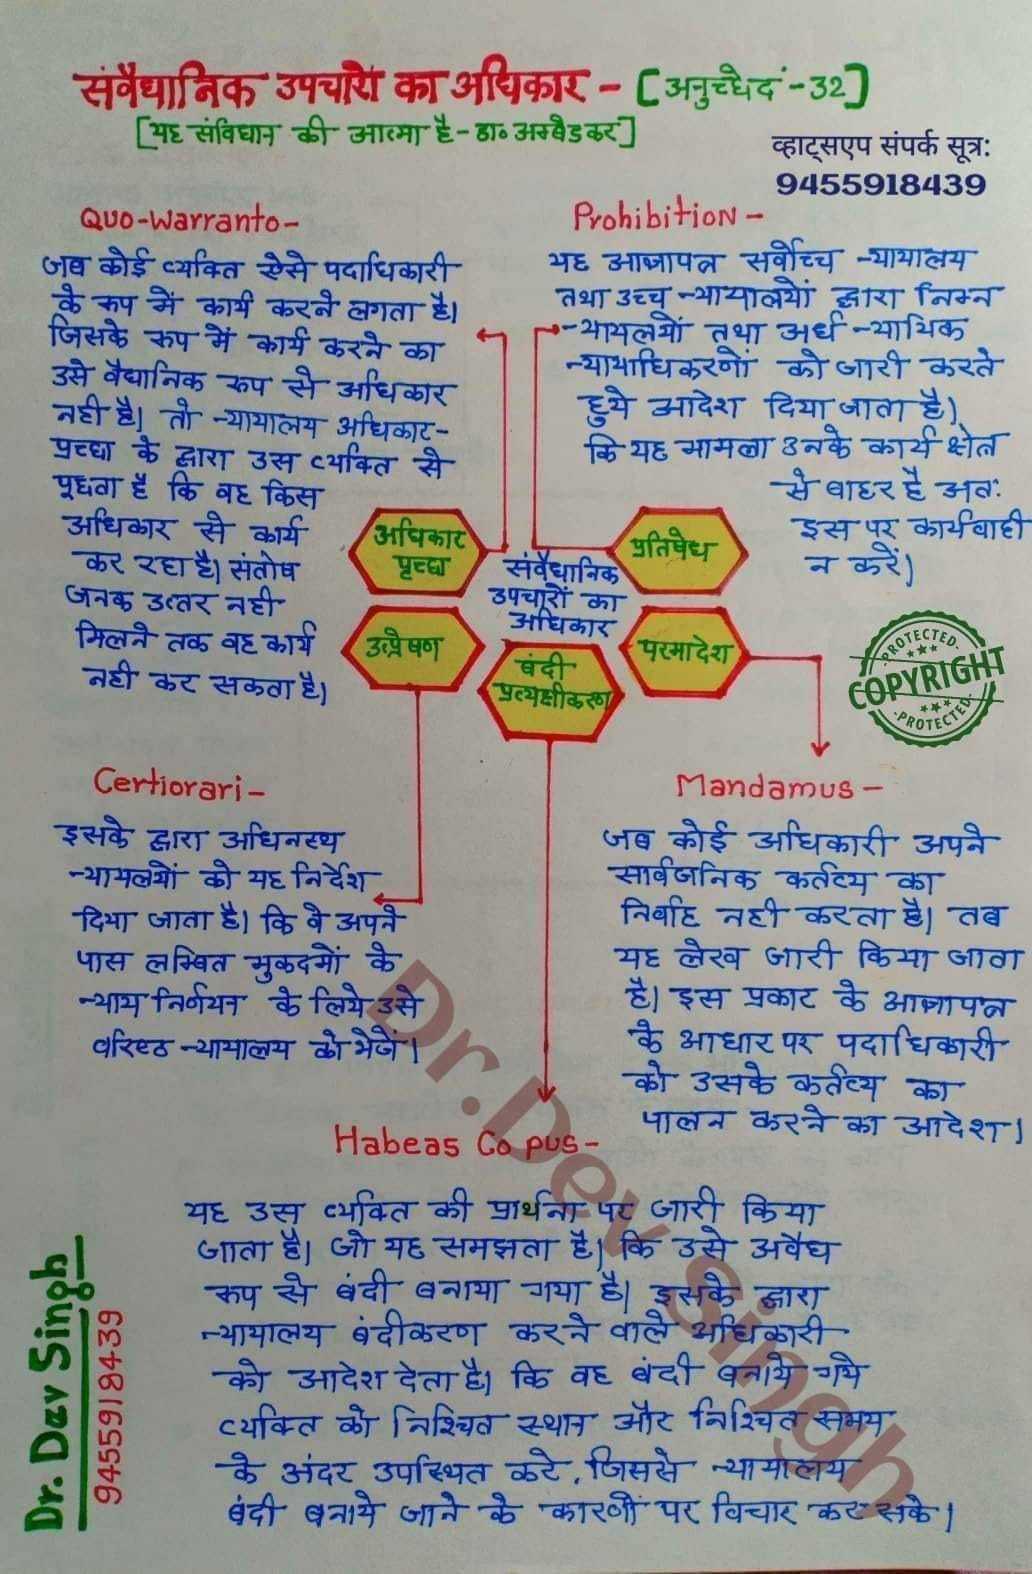 संवैधानिक उपचारों का अधिकार - [अनुच्छेद -32]
[यह संविधान की आत्मा है - डा० अम्बेडकर]
व्हाट्सएप संपर्क सूत्र:
9455918439
Quo-warranto-
जब कोई व्यक्ति ऐसे पदाधिकारी
के रूप में कार्य करने लगता है।
जिसके रूप में कार्य करने का
उसे वैधानिक रूप से अधिकार
नही है। तो न्यायालय अधिकार-
प्रच्छा के द्वारा उस व्यक्ति से
पूछता है कि वह किस
अधिकार से कार्य
कर रहा है। संतोष
जनक उत्तर नही
मिलने तक वह कार्य
नही कर सकता है।
Prohibition -
यह आज्ञापत्र सर्वोच्च न्यायालय
तथा उच्च न्यायालयों द्वारा निम्न
न्यायलयों तथा अर्ध न्यायिक
न्यायाधिकरणों को जारी करते
हुये आदेश दिया जाता है।
कि यह मामला उनके कार्य क्षेत्र
से बाहर है अतः
इस पर कार्यवाही
न करें।
अधिकार
पृच्छा
प्रतिषेध
संवैधानिक
उपचारों का
अधिकार
उत्प्रेषण
बंदी
प्रत्यक्षीकरण
परमादेश
PROTECTED
COPYRIGHT
PROTECTED
Certiorari-
इसके द्वारा अधिनस्थ
न्यायलयों को यह निर्देश
दिया जाता है। कि वे अपने
पास लम्बित मुकदमों के
न्याय निर्णयन के लिये उसे
वरिष्ठ न्यायालय को भेजें।
Mandamus -
जब कोई अधिकारी अपने
सार्वजनिक कर्तव्य का
निर्वाह नही करता है। तब
यह लेख जारी किया जाता
है। इस प्रकार के आज्ञापत्र
के आधार पर पदाधिकारी
को उसके कर्तव्य का
पालन करने का आदेश।
Habeas Co pus-
यह उस व्यक्ति की प्रार्थना पर जारी किया
जाता है। जो यह समझता है। कि उसे अवैध
रूप से बंदी बनाया गया है। इसके द्वारा
न्यायालय बंदीकरण करने वाले अधिकारी
को आदेश देता है। कि वह बंदी बनाये गये
व्यक्ति को निश्चित स्थान और निश्चित समय
के अंदर उपस्थित करे, जिससे न्यायालय
बंदी बनाये जाने के कारणों पर विचार कर सके।
Dr. Dev Singh
Dr. Dav Singh
9455918439